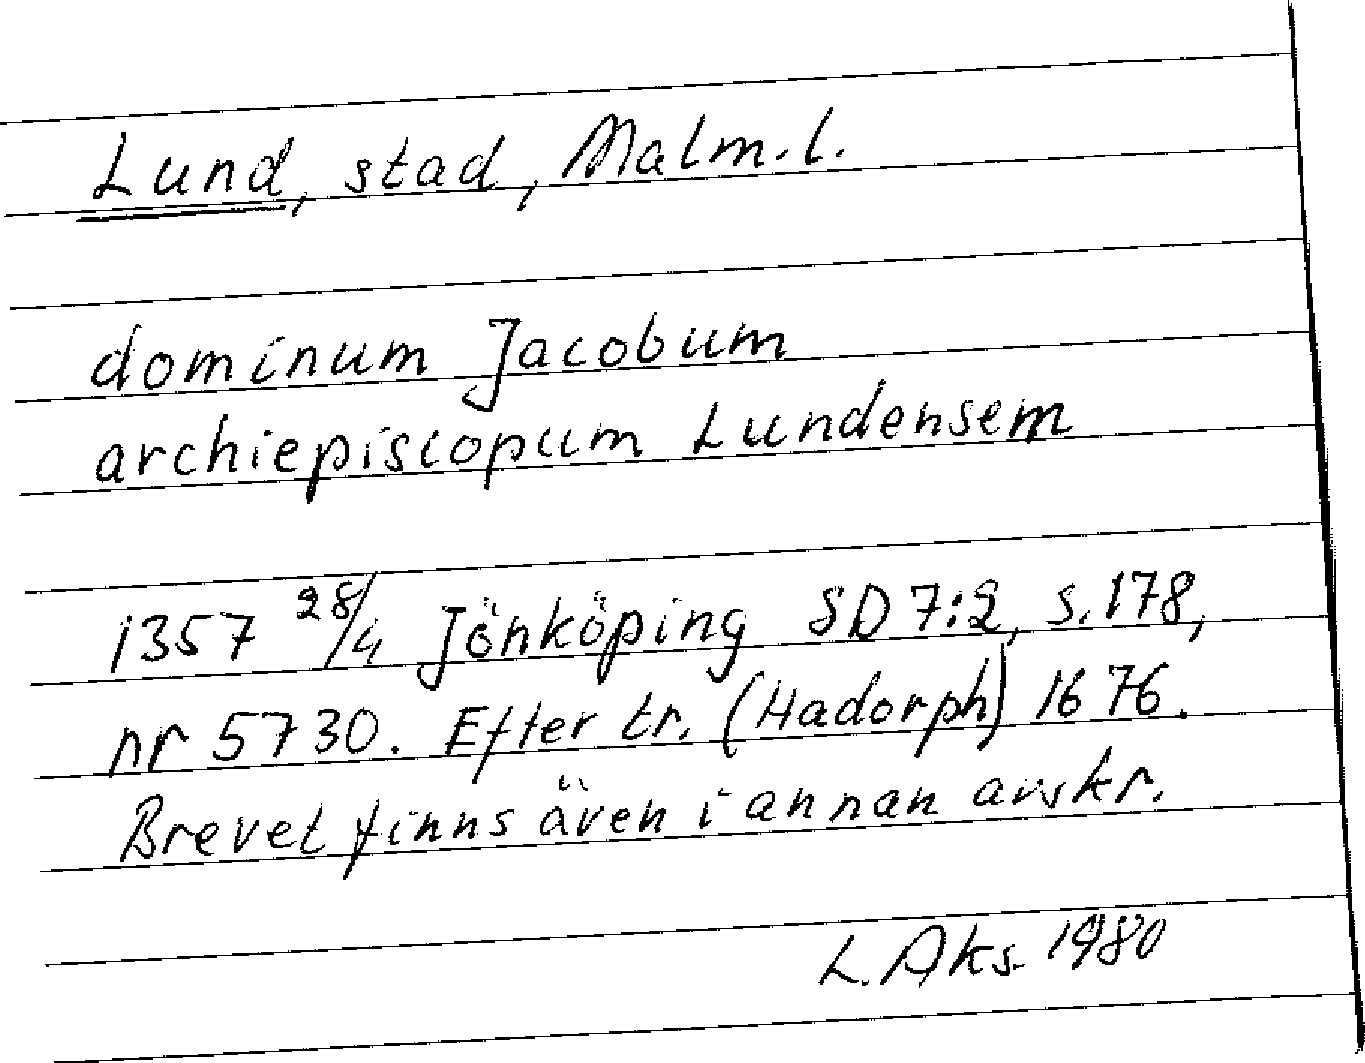 Lund, stad, Malm.l.
dominum Jacobum
archiepiscopum Lundensem
1357 28/4 Jönköping SD 7:2, s. 178,
nr 5730. Efter tr. (Hadorph) 1676.
Brevet finns även i annan avskr.
L. Aks. 1980